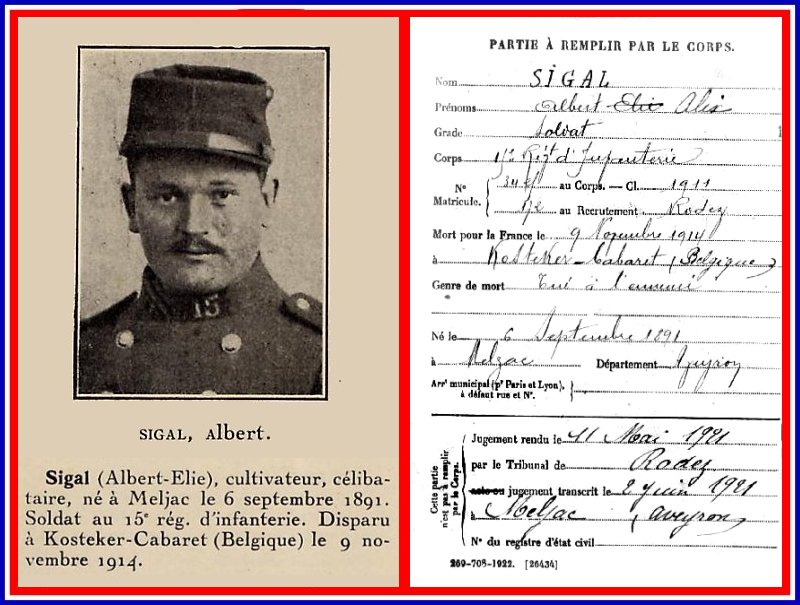 15
SIGAL, Albert.
Sigal (Albert-Elie), cultivateur, céliba-
taire, né à Meljac le 6 septembre 1891.
Soldat au 15e rég. d'infanterie. Disparu
à Kosteker-Cabaret (Belgique) le 9 no-
vembre 1914.
PARTIE À REMPLIR PAR LE CORPS.
Nom SIGAL
Prénoms Albert Elie Alis
Grade Soldat
Corps 15e Régt d'Infanterie
N° Matricule. au Corps. — Cl. 1911
au Recrutement Rodez
Mort pour la France le 9 Novembre 1914
à Kosteker-Cabaret (Belgique)
Genre de mort Tué à l'ennemi
Né le 6 Septembre 1891
à Melzac Département Aveyron
Arrt municipal (pr Paris et Lyon),
à défaut rue et N°.
Cette partie n'est pas à remplir par le Corps.
Jugement rendu le 11 Mai 1921
par le Tribunal de Rodez
acte ou jugement transcrit le 2 juin 1921
à Meljac (aveyron)
N° du registre d'état civil
269-708-1922. [26434]